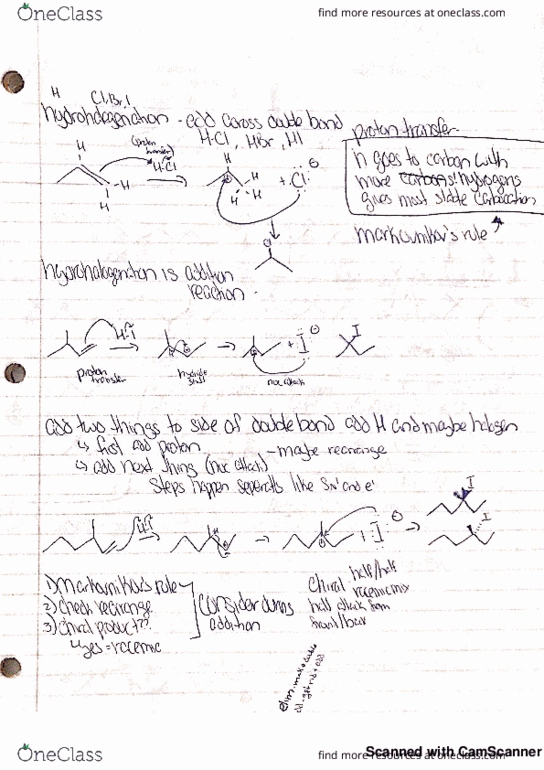 OneClass
find more resources at oneclass.com
H Cl, Br, I
hydrohalogenation - add across double bond
H-Cl, HBr, HI
proton transfer
H goes to carbon with
more hydrogens
gives most stable carbocation
markovnikov's rule
(proton transfer)
H-Cl
+ Cl
hydrohalogenation is addition
reaction.
H-I
+ I
I
proton
transfer
hydride
shift
nuc attack
add two things to side of double bond add H and maybe halogen
↳ first add proton
- maybe rearrange
↳ add next thing (nuc attack)
steps happen seperatly like SN1 and E1
H-I
+ I
I
I
1) Markovnikov's rule
2) check rearrange
3) chiral product??
↳ yes = racemic
consider during
addition
Chiral half/half
racemic mix
half attack from
front/back
elim. make double
add. get rid + add
OneClass
find more resources at oneclass.com
Scanned with CamScanner